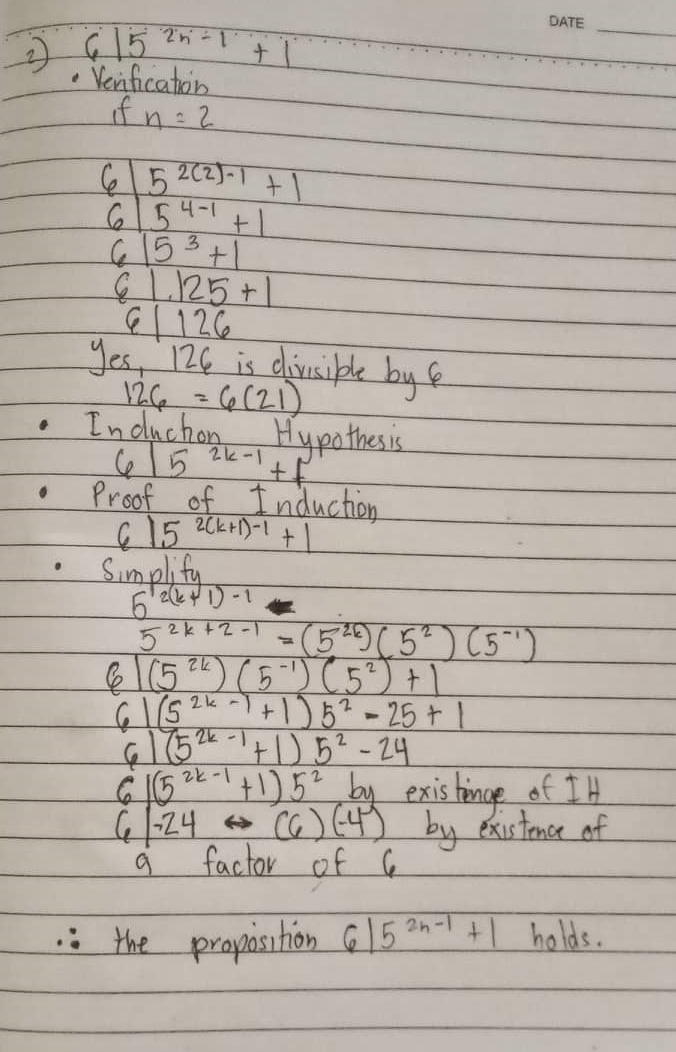 DATE
2) 6 | 5^{2n-1} + 1
• Verification
if n = 2
6 | 5^{2(2)-1} + 1
6 | 5^{4-1} + 1
6 | 5^{3} + 1
6 | 125 + 1
6 | 126
Yes, 126 is divisible by 6
126 = 6(21)
• Induction Hypothesis
6 | 5^{2k-1} + 1
• Proof of Induction
6 | 5^{2(k+1)-1} + 1
• Simplify
5^{2(k+1)-1}
5^{2k+2-1} = (5^{2k})(5^{2})(5^{-1})
6 | (5^{2k})(5^{-1})(5^{2}) + 1
6 | (5^{2k-1} + 1) 5^{2} - 25 + 1
6 | (5^{2k-1} + 1) 5^{2} - 24
6 | (5^{2k-1} + 1) 5^{2} by existince of IH
6 | -24 ↔ (6)(-4) by existence of
a factor of 6
∴ the proposition 6 | 5^{2n-1} + 1 holds.